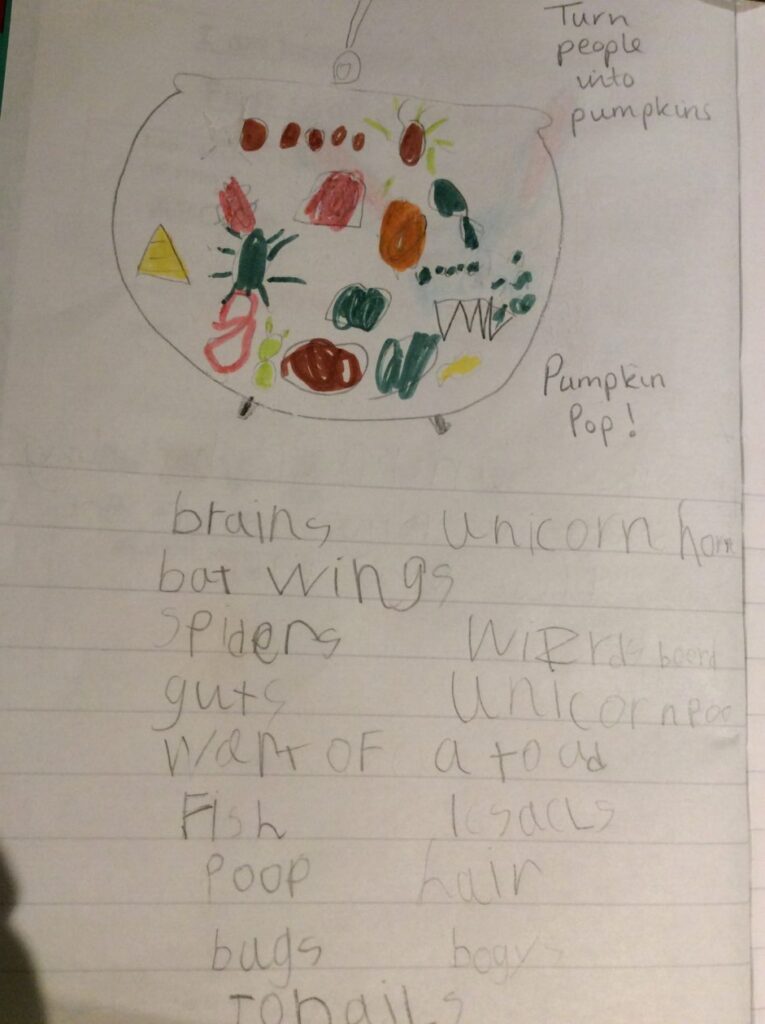 Turn
people
into
pumpkins
Pumpkin
Pop!
brains unicorn horn
bat wings
spiders wizrds beerd
guts unicorn poo
wart of a toad
Fish
poop hair
bugs bogys
Tonails